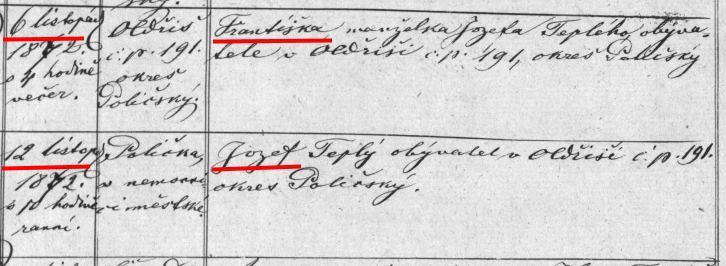 6 listopad
1872.
o 4 hodině
večer.
Oldřiš
č. p. 191.
okres
Poličský.
Františka manželka Jozefa Teplého, obyva-
tele v Oldřiši č. p. 191, okres Poličský
12 listop
1872.
o 10 hodině
ranní.
Polička,
v nemocni-
ci městské.
Jozef Teplý obývatel v Oldřiši č. p. 191.
okres Poličský.